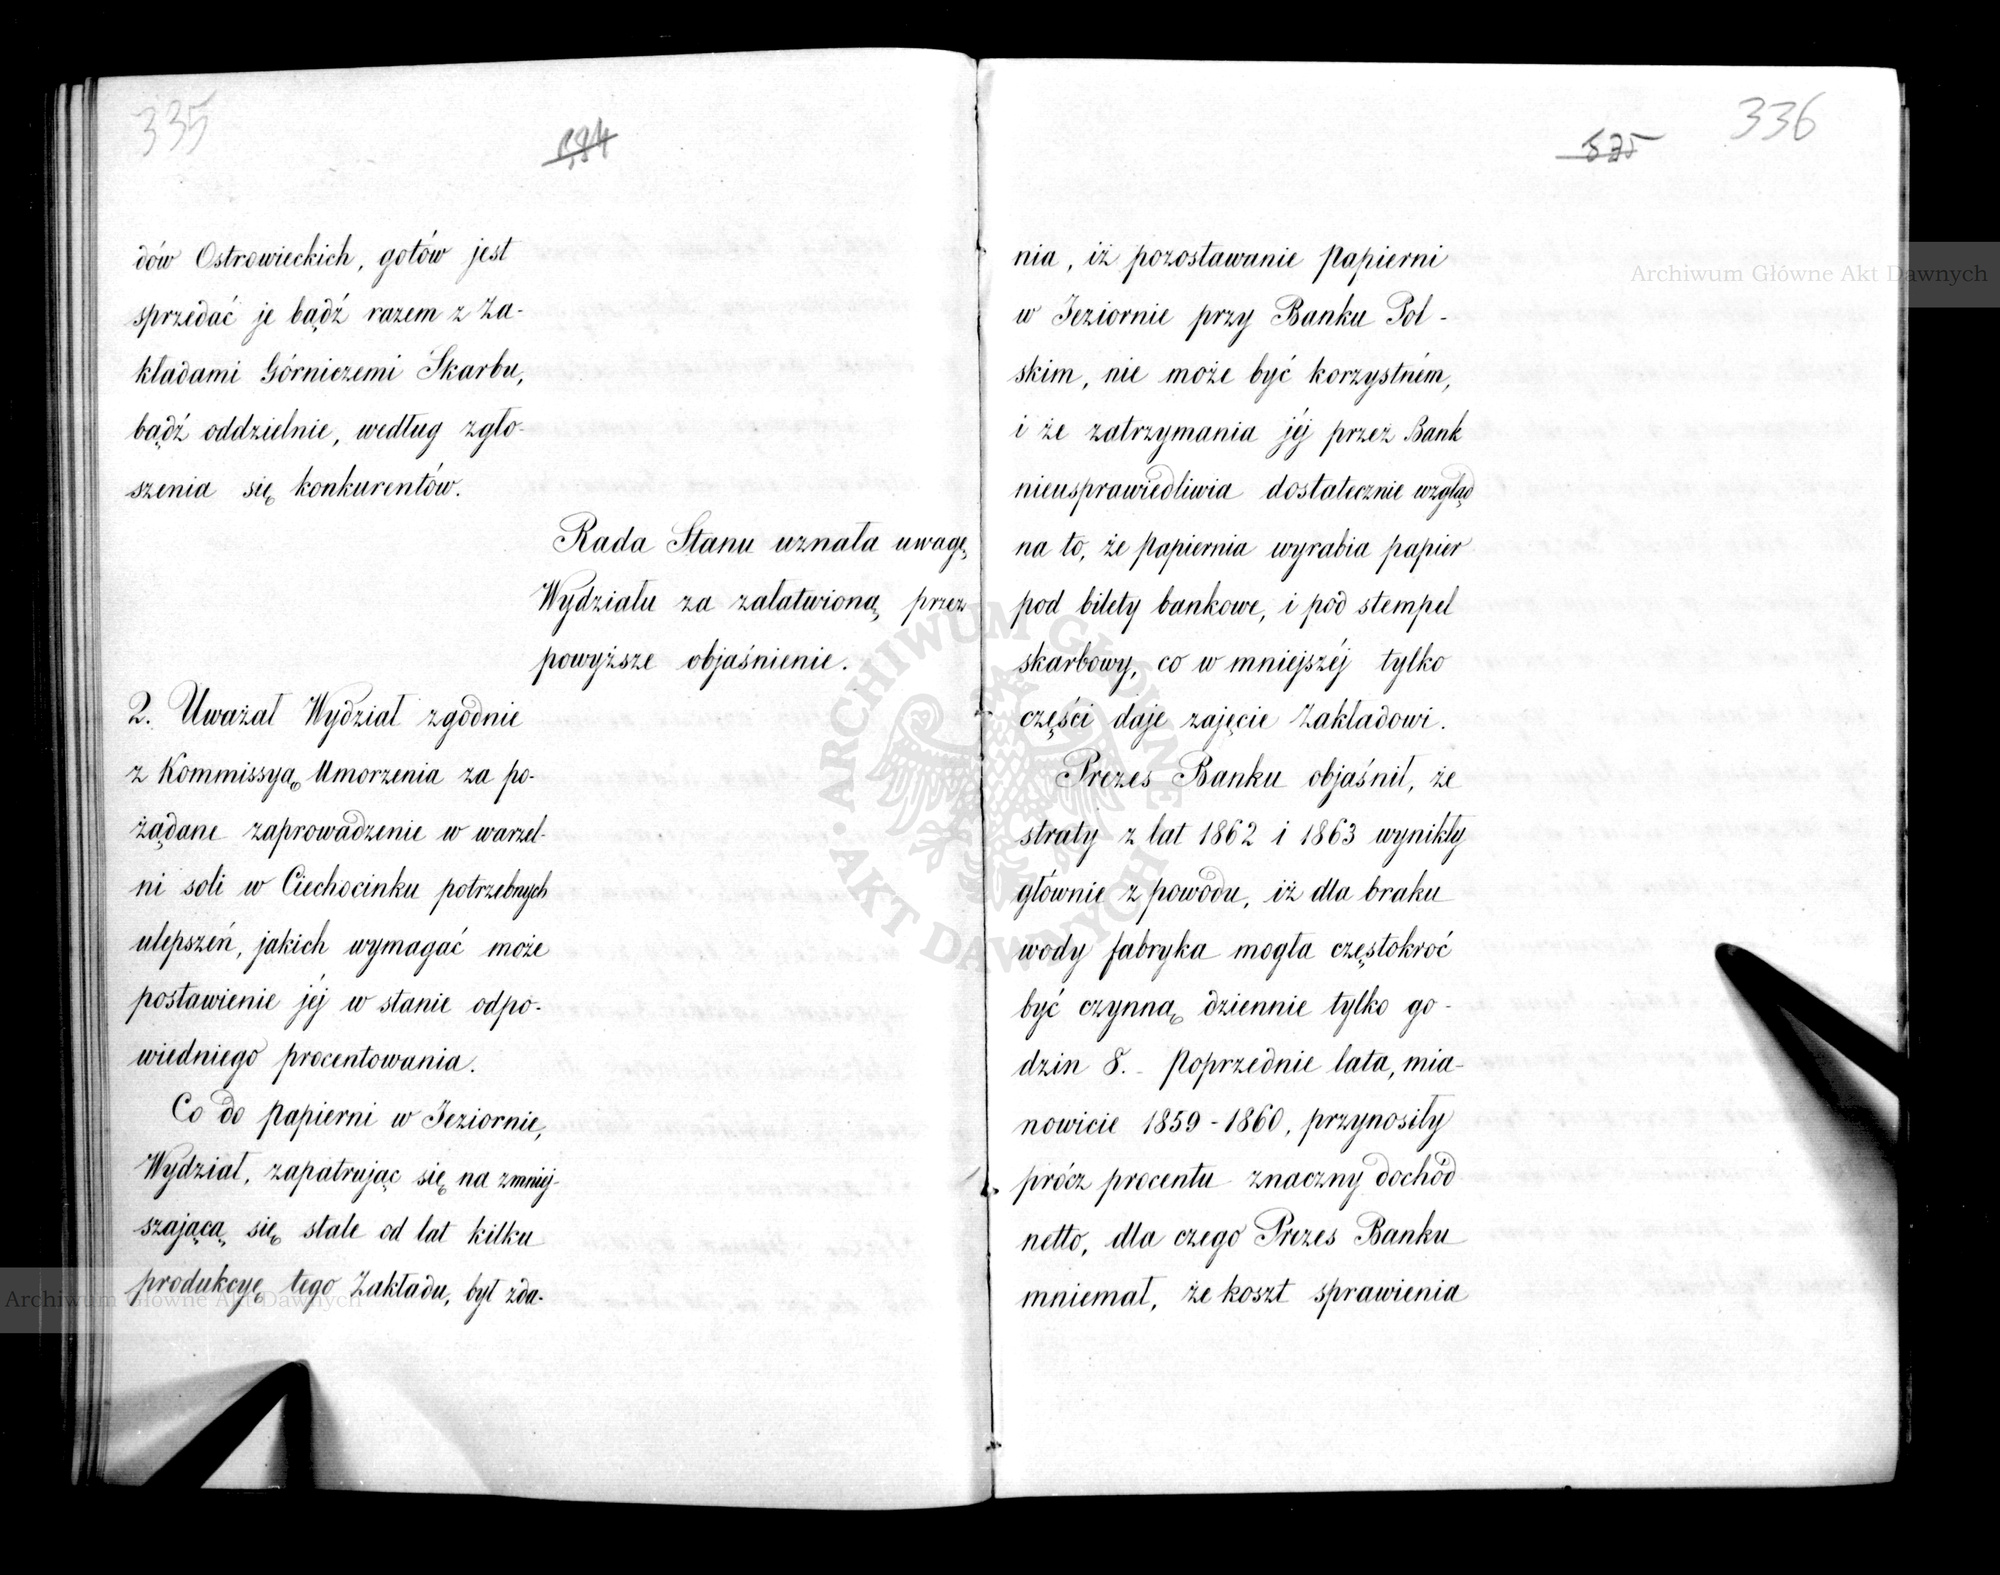 335
dów Ostrowieckich, gotów jest
sprzedać je bądź razem z Za-
kładami Górniczemi Skarbu,
bądź oddzielnie, według zgło-
szenia się konkurentów.
Rada Stanu uznała uwagę
Wydziału za załatwioną przez
powyższe objaśnienie.
2. Uważał Wydział zgodnie
z Kommissyą Umorzenia za po-
żądane zaprowadzenie w warzel-
ni soli w Ciechocinku potrzebnych
ulepszeń, jakich wymagać może
postawienie jéj w stanie odpo-
wiedniego procentowania.
Co do Papierni w Jeziornie,
Wydział, zapatrując się na zmniej-
szającą się stale od lat kilku
produkcyę tego Zakładu, był zda-
336
575
nia, iż pozostawanie Papierni
w Jeziornie przy Banku Pol-
skim, nie może być korzystném,
i że zatrzymania jéj przez Bank
nieusprawiedliwia dostatecznie wzgląd
na to, że Papiernia wyrabia papier
pod bilety bankowe, i pod stempel
skarbowy, co w mniejszéj tylko
części daje zajęcie Zakładowi.
Prezes Banku objaśnił, że
straty z lat 1862 i 1863 wynikły
głównie z powodu, iż dla braku
wody fabryka mogła częstokroć
być czynną dziennie tylko go-
dzin 8. - Poprzednie lata, mia-
nowicie 1859-1860, przynosiły
prócz procentu znaczny dochód
netto, dla czego Prezes Banku
mniemał, że koszt sprawienia
Archiwum Główne Akt Dawnych
ARCHIWUM GŁÓWNE AKT DAWNYCH
Archiwum Główne Akt Dawnych